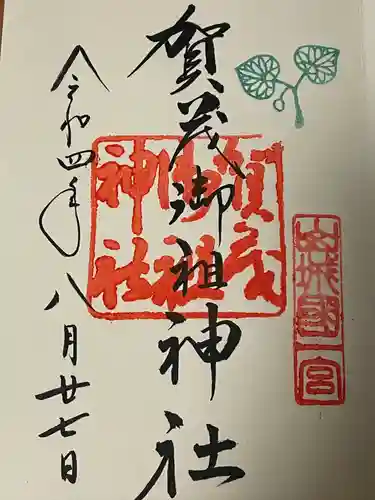 賀茂御祖神社
令和四年八月廿七日
賀茂御祖神社
山城國一宮